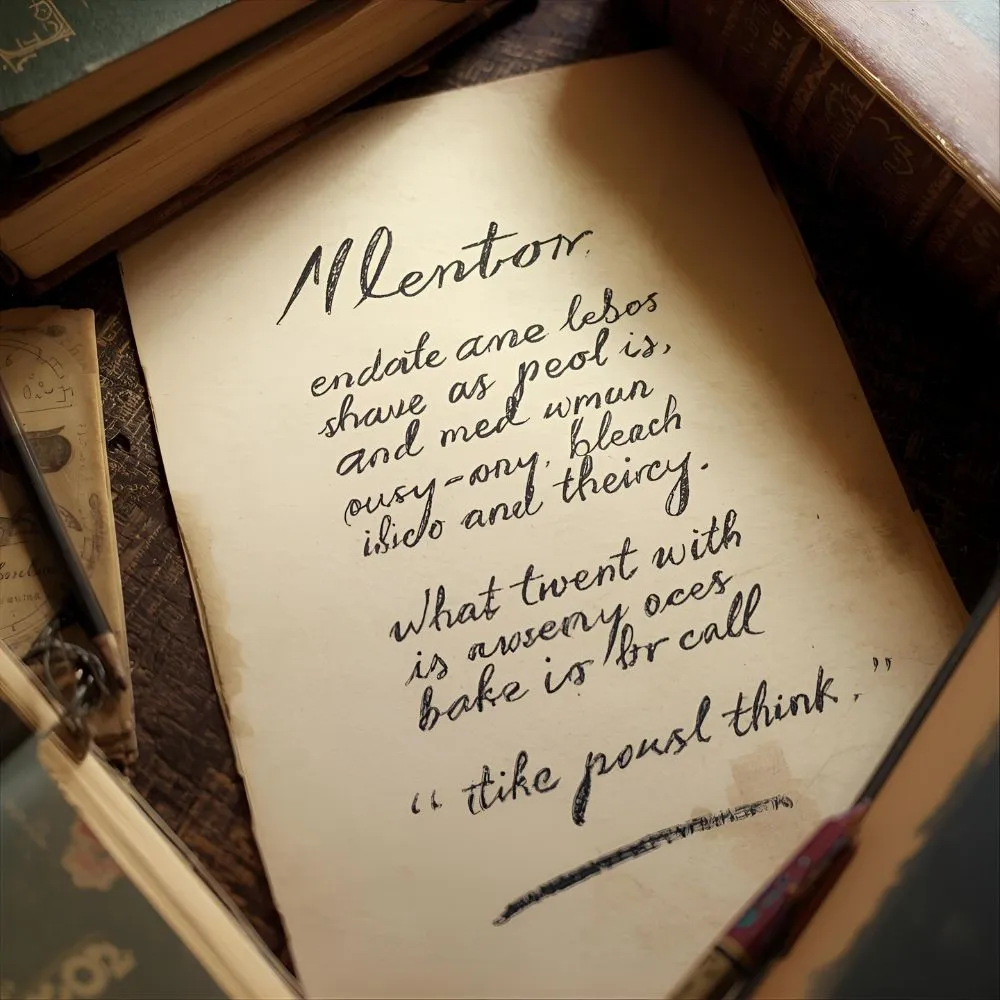 Mentor
endate ane lebos
shave as peol is,
and med wmun
ousy-ony, bleach
ibico and theircy.
What twent with
is awsemy oces
bake is br call
“ tike pousl think. ”